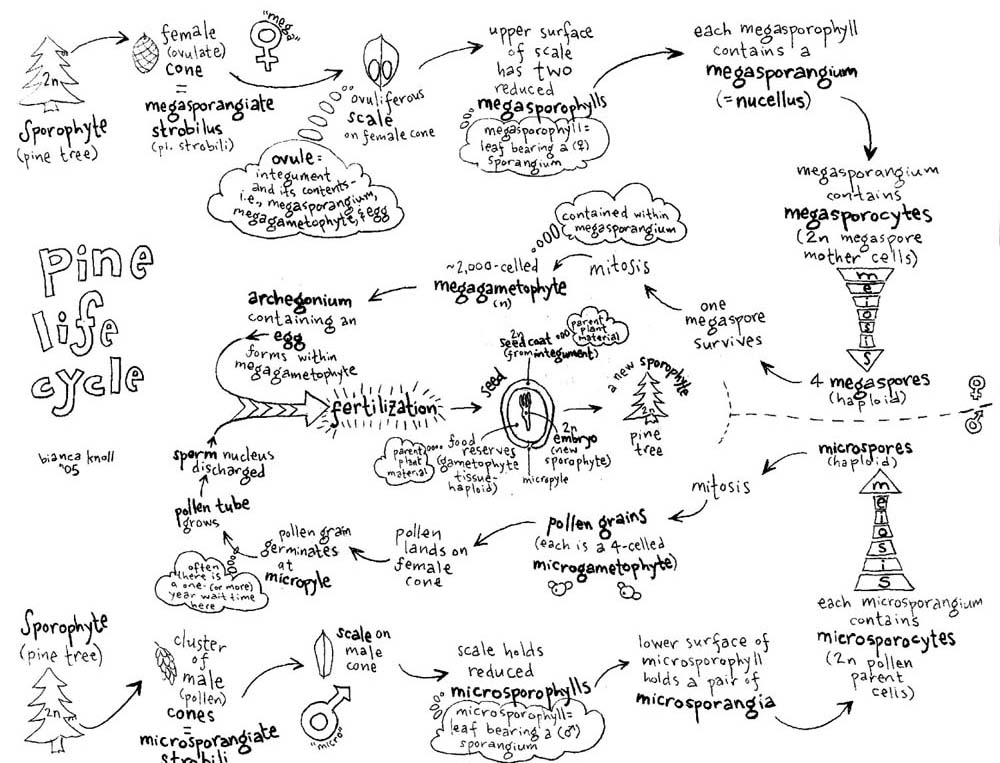 "mega"
2n
Sporophyte
(pine tree)
female
(ovulate)
cone
=
megasporangiate
strobilus
(pl. strobili)
ovuliferous
scale
on female cone
ovule =
integument
and its contents-
i.e., megasporangium,
megagametophyte, & egg
upper surface
of scale
has two
reduced
megasporophylls
megasporophyll=
leaf bearing a (♀)
sporangium
each megasporophyll
contains a
megasporangium
(= nucellus)
megasporangium
contains
megasporocytes
(2n megaspore
mother cells)
meiosis
4 megaspores
(haploid)
one
megaspore
survives
mitosis
contained within
megasporangium
~2,000-celled
megagametophyte
(n)
archegonium
containing an
egg
forms within
megagametophyte
pine
life
cycle
bianca knoll
'05
fertilization
seed
2n
seed coat
(from integument)
parent
plant
material
parent
plant
material
food
reserves
(gametophyte
tissue-
haploid)
2n
embryo
(new
sporophyte)
micropyle
a new sporophyte
2n
pine
tree
♀
♂
sperm nucleus
discharged
pollen tube
grows
often
there is
a one- (or more)
year wait time
here
pollen grain
germinates
at
micropyle
pollen
lands on
female
cone
pollen grains
(each is a 4-celled
microgametophyte)
mitosis
microspores
(haploid)
meiosis
each microsporangium
contains
microsporocytes
(2n pollen
parent
cells)
Sporophyte
(pine tree)
2n
cluster
of
male
(pollen)
cones
=
microsporangiate
strobili
scale on
male
cone
"micro"
scale holds
reduced
microsporophylls
microsporophyll=
leaf bearing a (♂)
sporangium
lower surface of
microsporophyll
holds a pair of
microsporangia